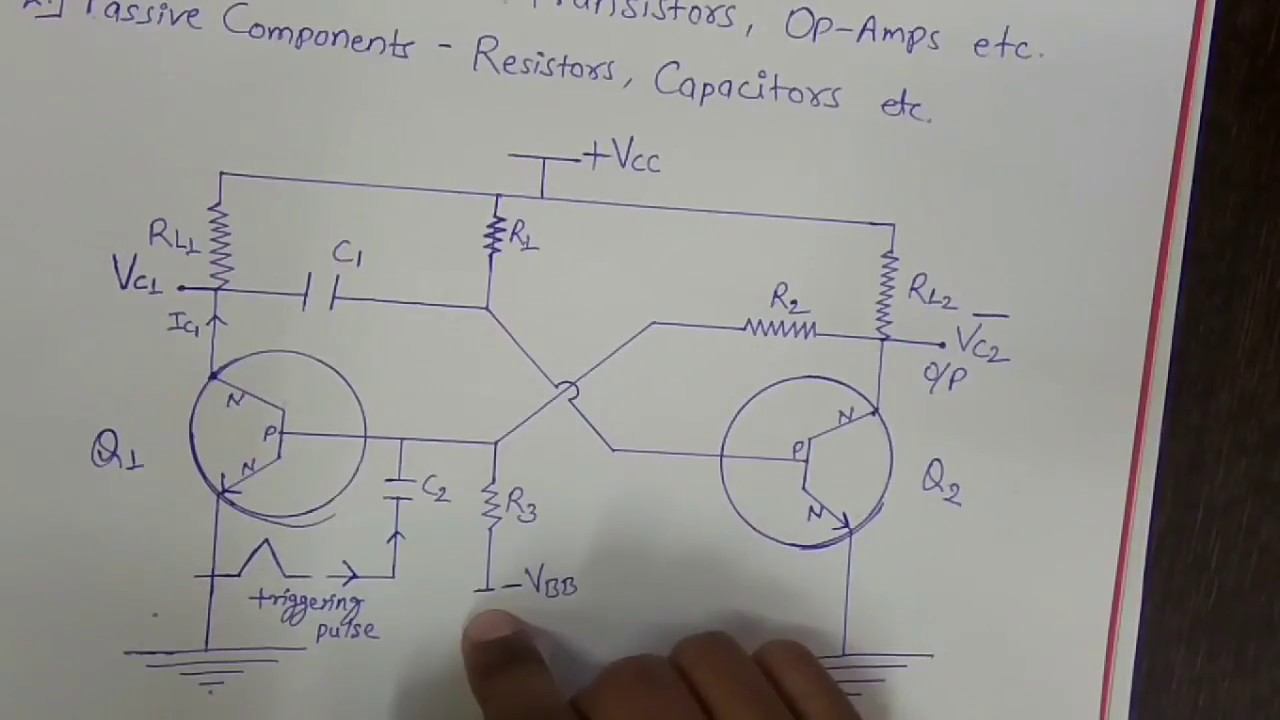 Transistors, Op-Amps etc.
Passive Components - Resistors, Capacitors etc.
+Vcc
RL1
C1
R1
VC1
IC1
R2
RL2
VC2
O/P
N
P
N
Q1
C2
R3
N
P
N
Q2
-VBB
triggering
pulse